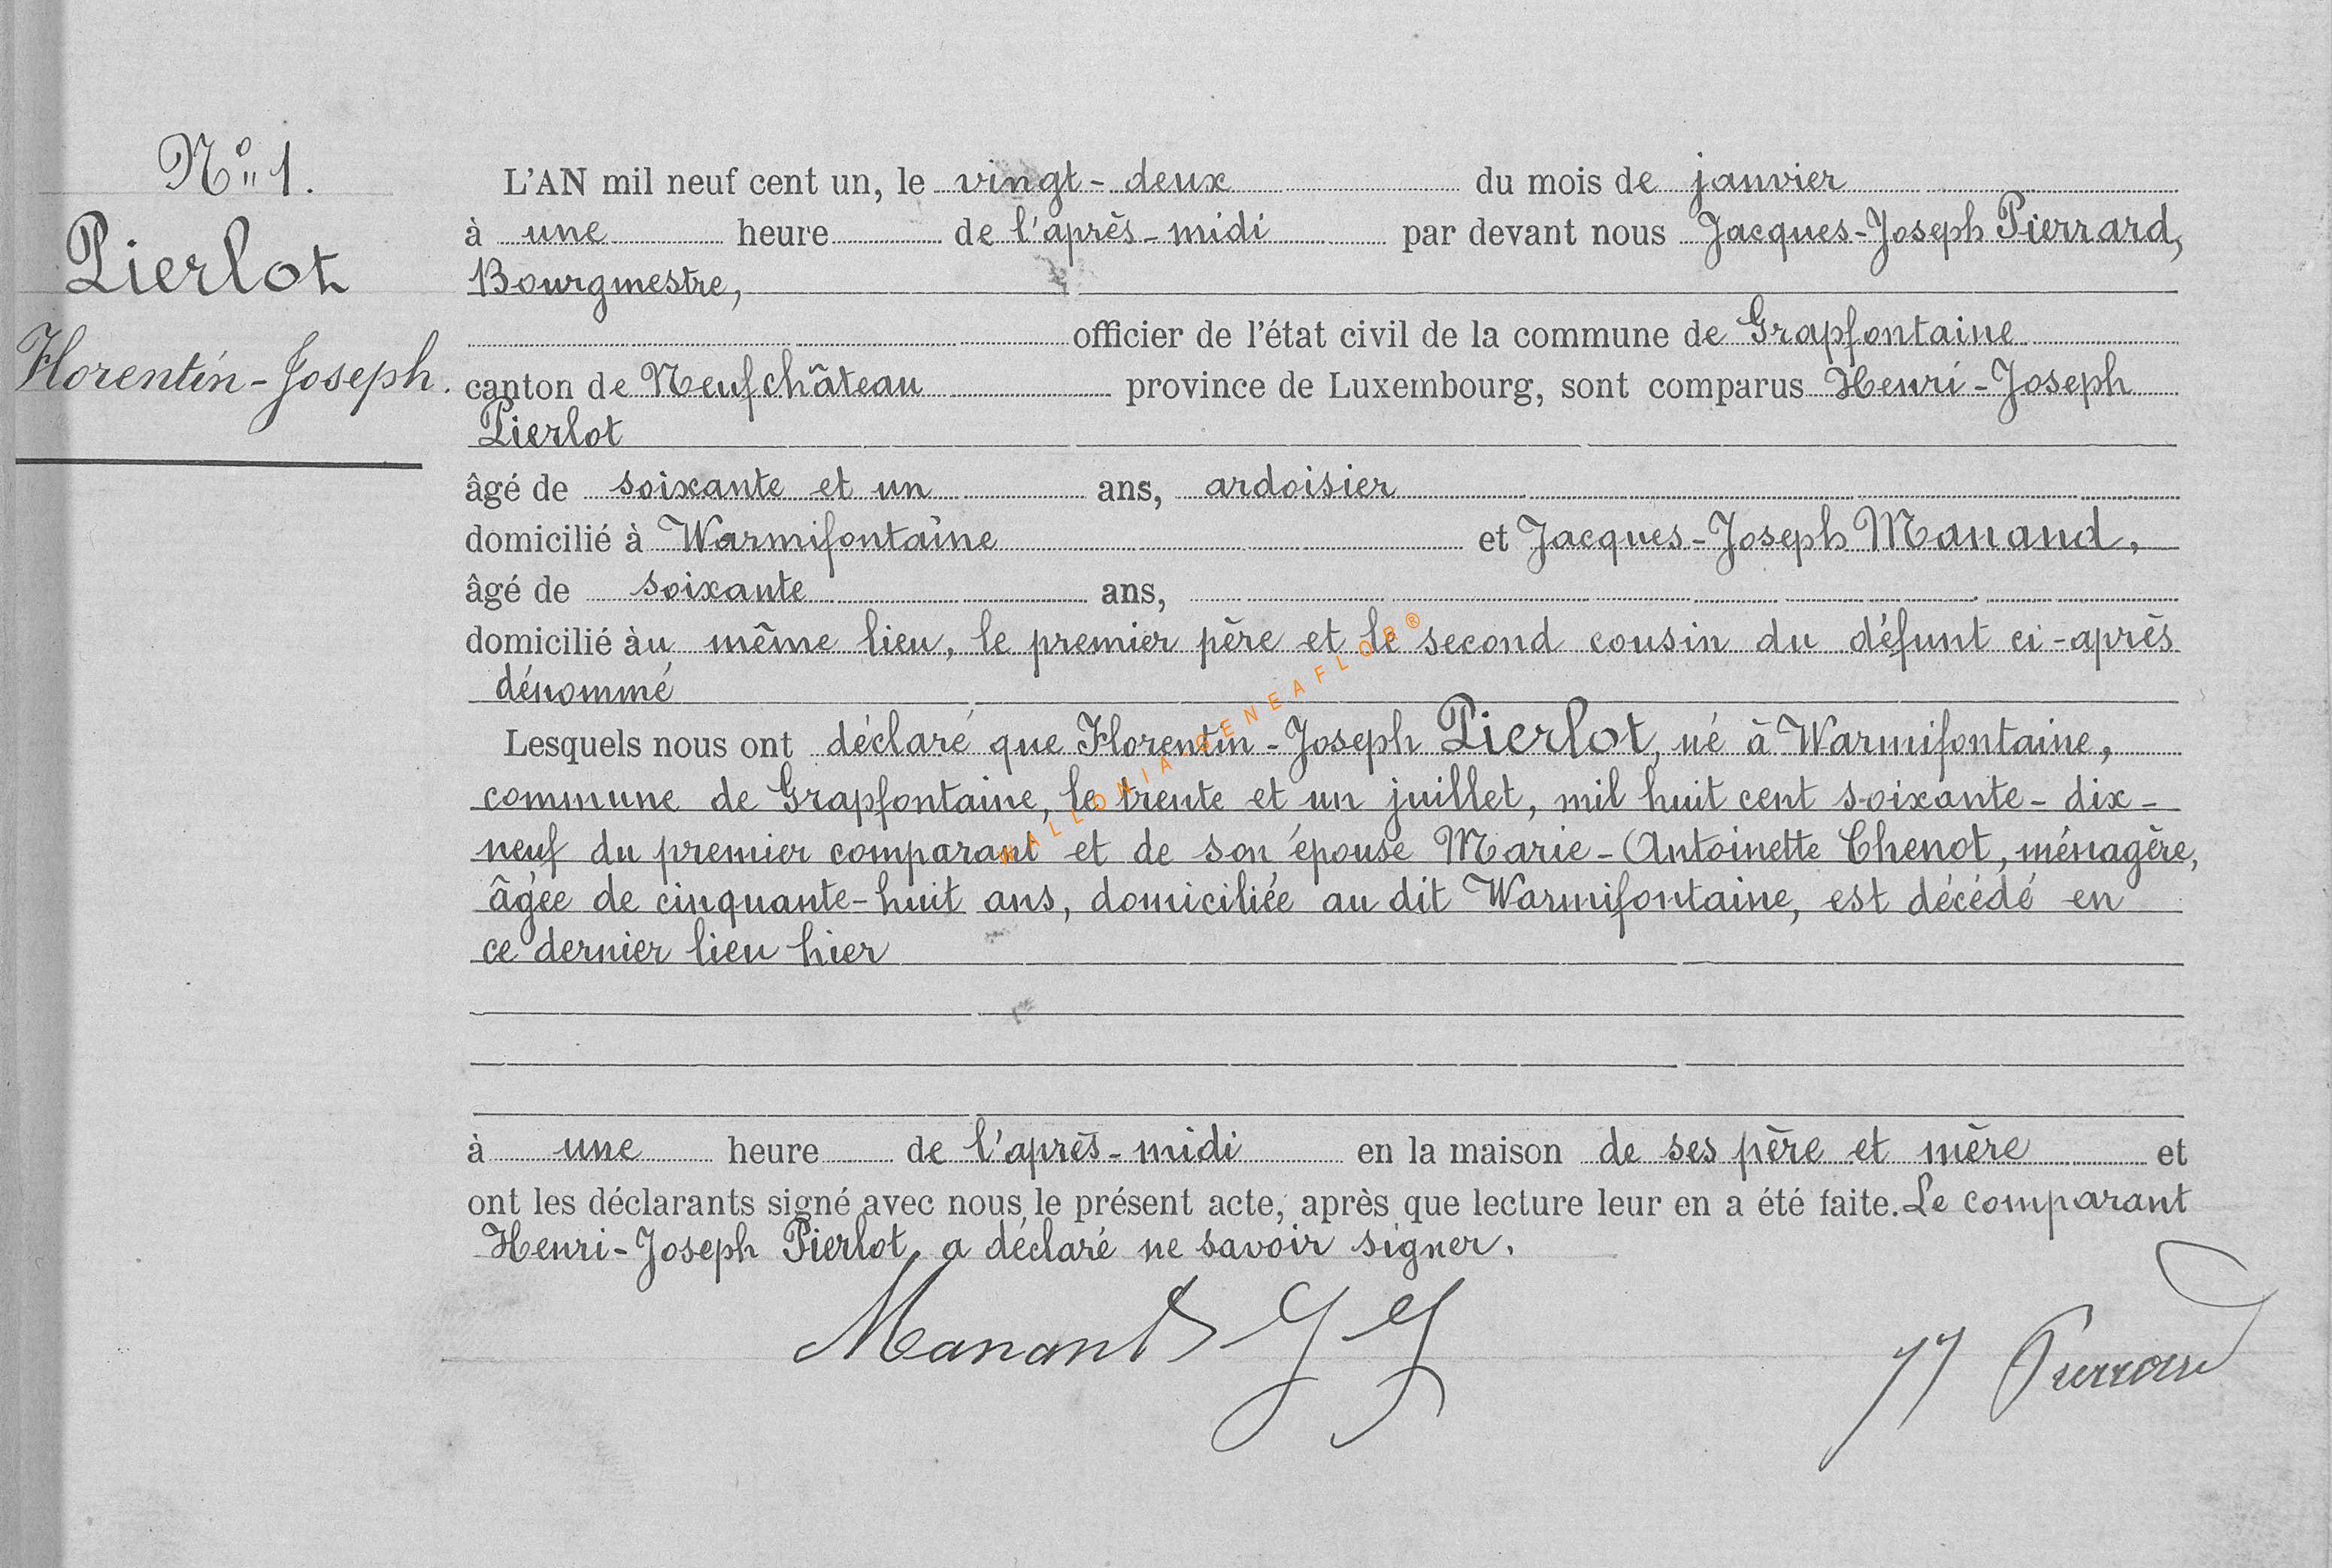 N° 1.
Pierlot
Florentin-Joseph.
L'AN mil neuf cent un, le vingt-deux du mois de janvier
à une heure de l'après-midi par devant nous Jacques-Joseph Pierrard,
Bourgmestre,
officier de l'état civil de la commune de Grapfontaine
canton de Neufchâteau province de Luxembourg, sont comparus Henri-Joseph
Pierlot
âgé de soixante et un ans, ardoisier
domicilié à Warmifontaine et Jacques-Joseph Manand,
âgé de soixante ans,
domicilié àu même lieu, le premier père et le second cousin du défunt ci-après
dénommé
Lesquels nous ont déclaré que Florentin-Joseph Pierlot, né à Warmifontaine,
commune de Grapfontaine, le trente et un juillet, mil huit cent soixante-dix-
neuf du premier comparant et de son épouse Marie-Antoinette Chenot, ménagère,
âgée de cinquante-huit ans, domiciliée au dit Warmifontaine, est décédé en
ce dernier lieu hier
à une heure de l'après-midi en la maison de ses père et mère et
ont les déclarants signé avec nous le présent acte, après que lecture leur en a été faite. Le comparant
Henri-Joseph Pierlot, a déclaré ne savoir signer.
Manant JJ
JJ Pierrard
WALLONIA-GENEAFLOR®